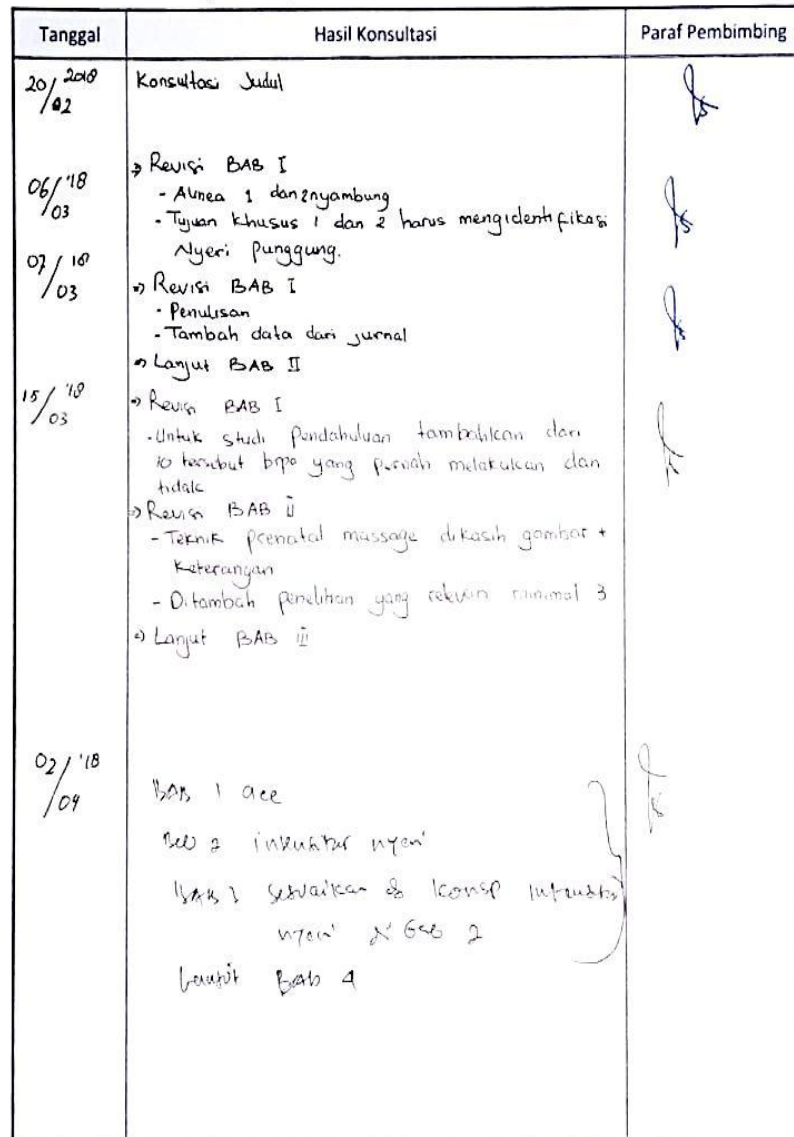 Tanggal Hasil Konsultasi Paraf Pembimbing
20/02 2018 Konsultasi Judul
06/03 '18 => Revisi BAB I
- Alinea 1 dan 2 nyambung
- Tujuan khusus 1 dan 2 harus mengidentifikasi
Nyeri punggung.
07/03 '18 => Revisi BAB I
- Penulisan
- Tambah data dari jurnal
=> Lanjut BAB II
15/03 '18 => Revisi BAB I
- Untuk studi pendahuluan tambahkan dari
10 tersebut brpa yang pernah melakukan dan
tidak
=> Revisi BAB II
- Teknik prenatal massage dikasih gambar +
Keterangan
- Ditambah penelitian yang relevan minimal 3
=> Lanjut BAB III
02/04 '18 BAB 1 acc
Bab 2 nyeri
BAB 3 sesuaikan konsep
nyeri Bab 2
Lanjut BAB 4